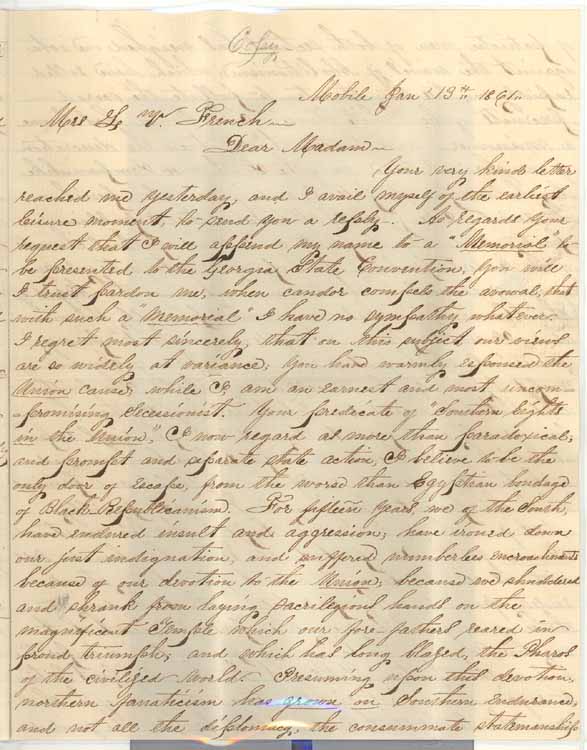 Copy
Mobile Jan 13th 1861.
Mrs L. V. French
Dear Madam
Your very kind letter
reached me yesterday, and I avail myself of the earliest
leisure moment, to send you a reply. As regards your
request that I will append my name to a "Memorial" to
be presented to the Georgia State Convention, you will
I trust pardon me, when candor compels the avowal, that
with such a Memorial" I have no sympathy whatever.
I regret most sincerely, that on this subject our views
are so widely at variance; you have warmly espoused the
Union cause, while I, am an earnest and most uncom-
-promising Secessionist. Your predicate of "Southern Rights
in the Union", I now regard as more than paradoxical,
and prompt and separate state action, I believe to be the
only door of escape, from the worse than Egyptian bondage
of Black Republicanism. For fifteen years we of the South
have endured insult and aggression; have ironed down
our just indignation, and suffered numberless encroachments
because of our devotion to the Union; because we shuddered
and shrank from laying sacrilegious hands on the
magnificent Temple which our fore-fathers reared in
proud triumph; and which has long blazed, the Pharos
of the civilized world. Presuming upon this devotion,
northern fanaticism has grown on Southern endurance,
and not all the diplomacy, the consummate statesmanship